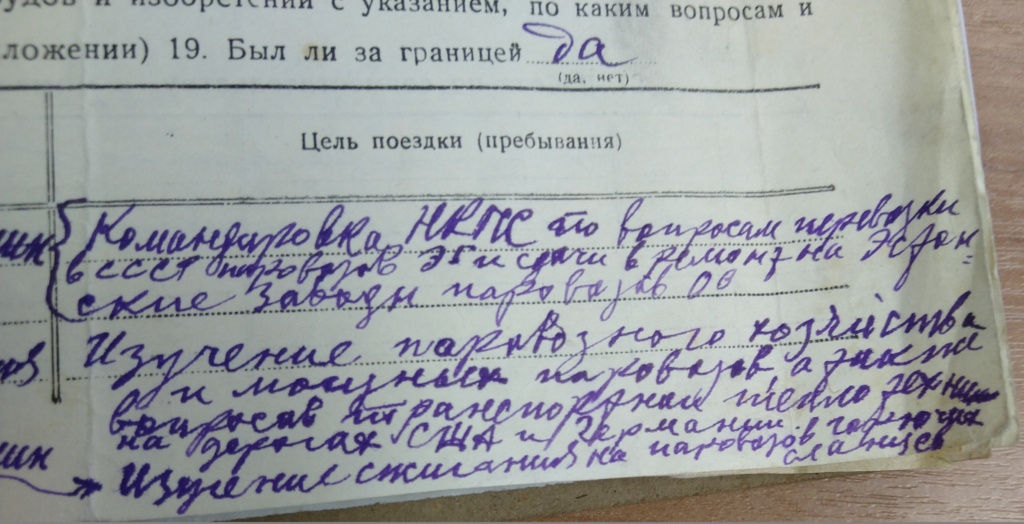 трудов и изобретений с указанием, по каким вопросам и
ложении) 19. Был ли за границей да
(да, нет)
Цель поездки (пребывания)
Командировка НКПС по вопросам перевозки
в СССР паровозов Эг и сдачи в ремонт на Эстон=
ские заводы паровозов Ов
Изучение паровозного хозяйства
и мощных паровозов а также
вопросов транспортной теплотехники
на дорогах США и Германии
Изучение сжигания на паровозов горючих
сланцев